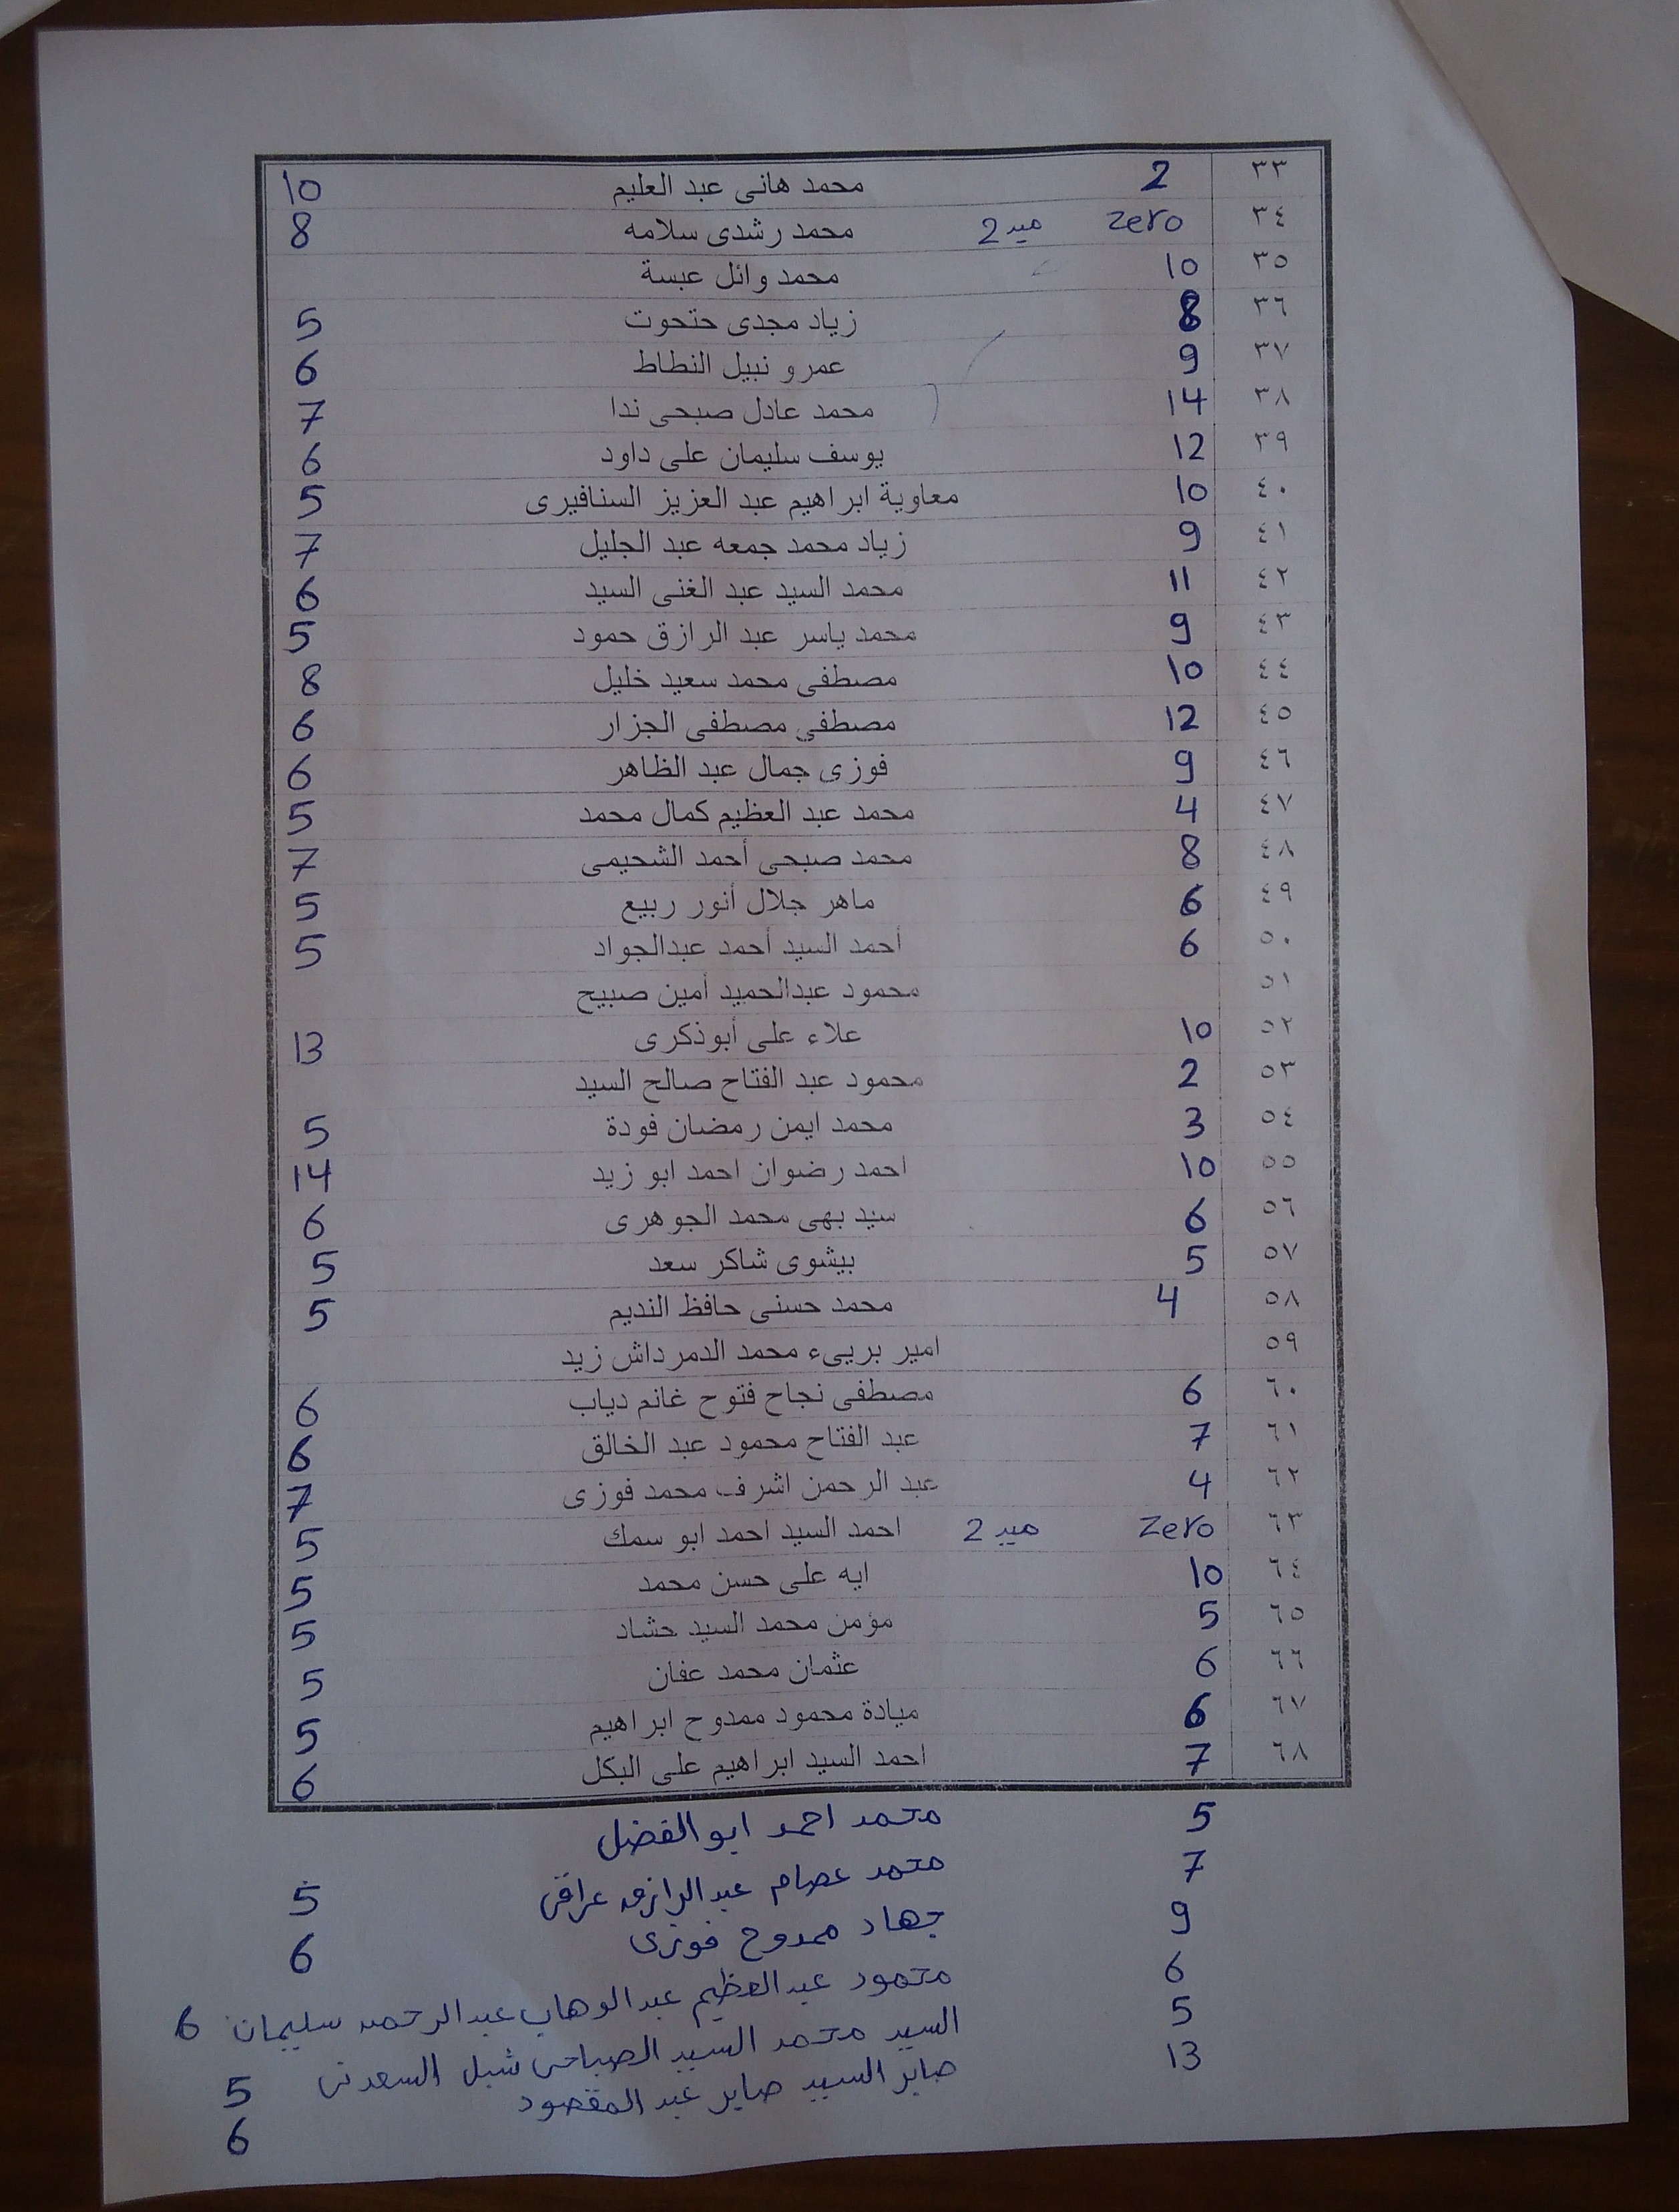 ٣٣ 2 محمد هانى عبد العليم 10
٣٤ zero ميد 2 محمد رشدى سلامه 8
٣٥ 10 محمد وائل عبسة
٣٦ 8 زياد مجدى حتحوت 5
٣٧ 9 عمرو نبيل النطاط 6
٣٨ 14 محمد عادل صبحى ندا 7
٣٩ 12 يوسف سليمان على داود 6
٤٠ 10 معاوية ابراهيم عبد العزيز السنافيرى 5
٤١ 9 زياد محمد جمعه عبد الجليل 7
٤٢ 11 محمد السيد عبد الغنى السيد 6
٤٣ 9 محمد ياسر عبد الرازق حمود 5
٤٤ 10 مصطفى محمد سعيد خليل 8
٤٥ 12 مصطفى مصطفى الجزار 6
٤٦ 9 فوزى جمال عبد الظاهر 6
٤٧ 4 محمد عبد العظيم كمال محمد 5
٤٨ 8 محمد صبحى أحمد الشحيمى 7
٤٩ 6 ماهر جلال أنور ربيع 5
٥٠ 6 أحمد السيد أحمد عبدالجواد 5
٥١ محمود عبدالحميد أمين صبيح
٥٢ 10 علاء على أبوذكرى 13
٥٣ 2 محمود عبد الفتاح صالح السيد
٥٤ 3 محمد ايمن رمضان فودة 5
٥٥ 10 احمد رضوان احمد ابو زيد 14
٥٦ 6 سيد بهى محمد الجوهرى 6
٥٧ 5 بيشوى شاكر سعد 5
٥٨ 4 محمد حسنى حافظ النديم 5
٥٩ امير بريىء محمد الدمرداش زيد
٦٠ 6 مصطفى نجاح فتوح غانم دياب 6
٦١ 7 عبد الفتاح محمود عبد الخالق 6
٦٢ 4 عبد الرحمن اشرف محمد فوزى 7
٦٣ zero ميد 2 احمد السيد احمد ابو سمك 5
٦٤ 10 ايه على حسن محمد 5
٦٥ 5 مؤمن محمد السيد حشاد 5
٦٦ 6 عثمان محمد عفان 5
٦٧ 6 ميادة محمود ممدوح ابراهيم 5
٦٨ 7 احمد السيد ابراهيم على البكل 6
5 محمد احمد ابو الفضل
7 محمد عصام عبد الرازق عراقى 5
9 جهاد ممدوح فوزى 6
6 محمود عبد العظيم عبد الوهاب عبد الرحمن سليمان 6
5 السيد محمد السيد الصباحى شبل السعدنى 5
13 صابر السيد صابر عبد المقصود 6